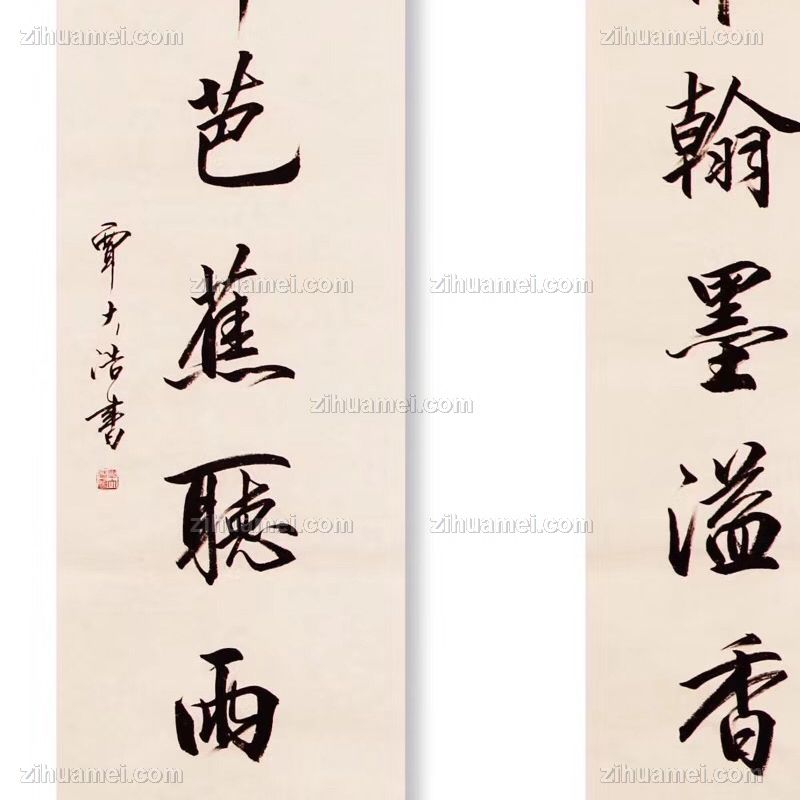 翰墨溢香
芭蕉聽雨
覃大浩書
zihuamei.com zihuamei.com
zihuamei.com zihuamei.com
zihuamei.com zihuamei.com
zihuamei.com
zihuamei.com zihuamei.com
zihuamei.com zihuamei.com